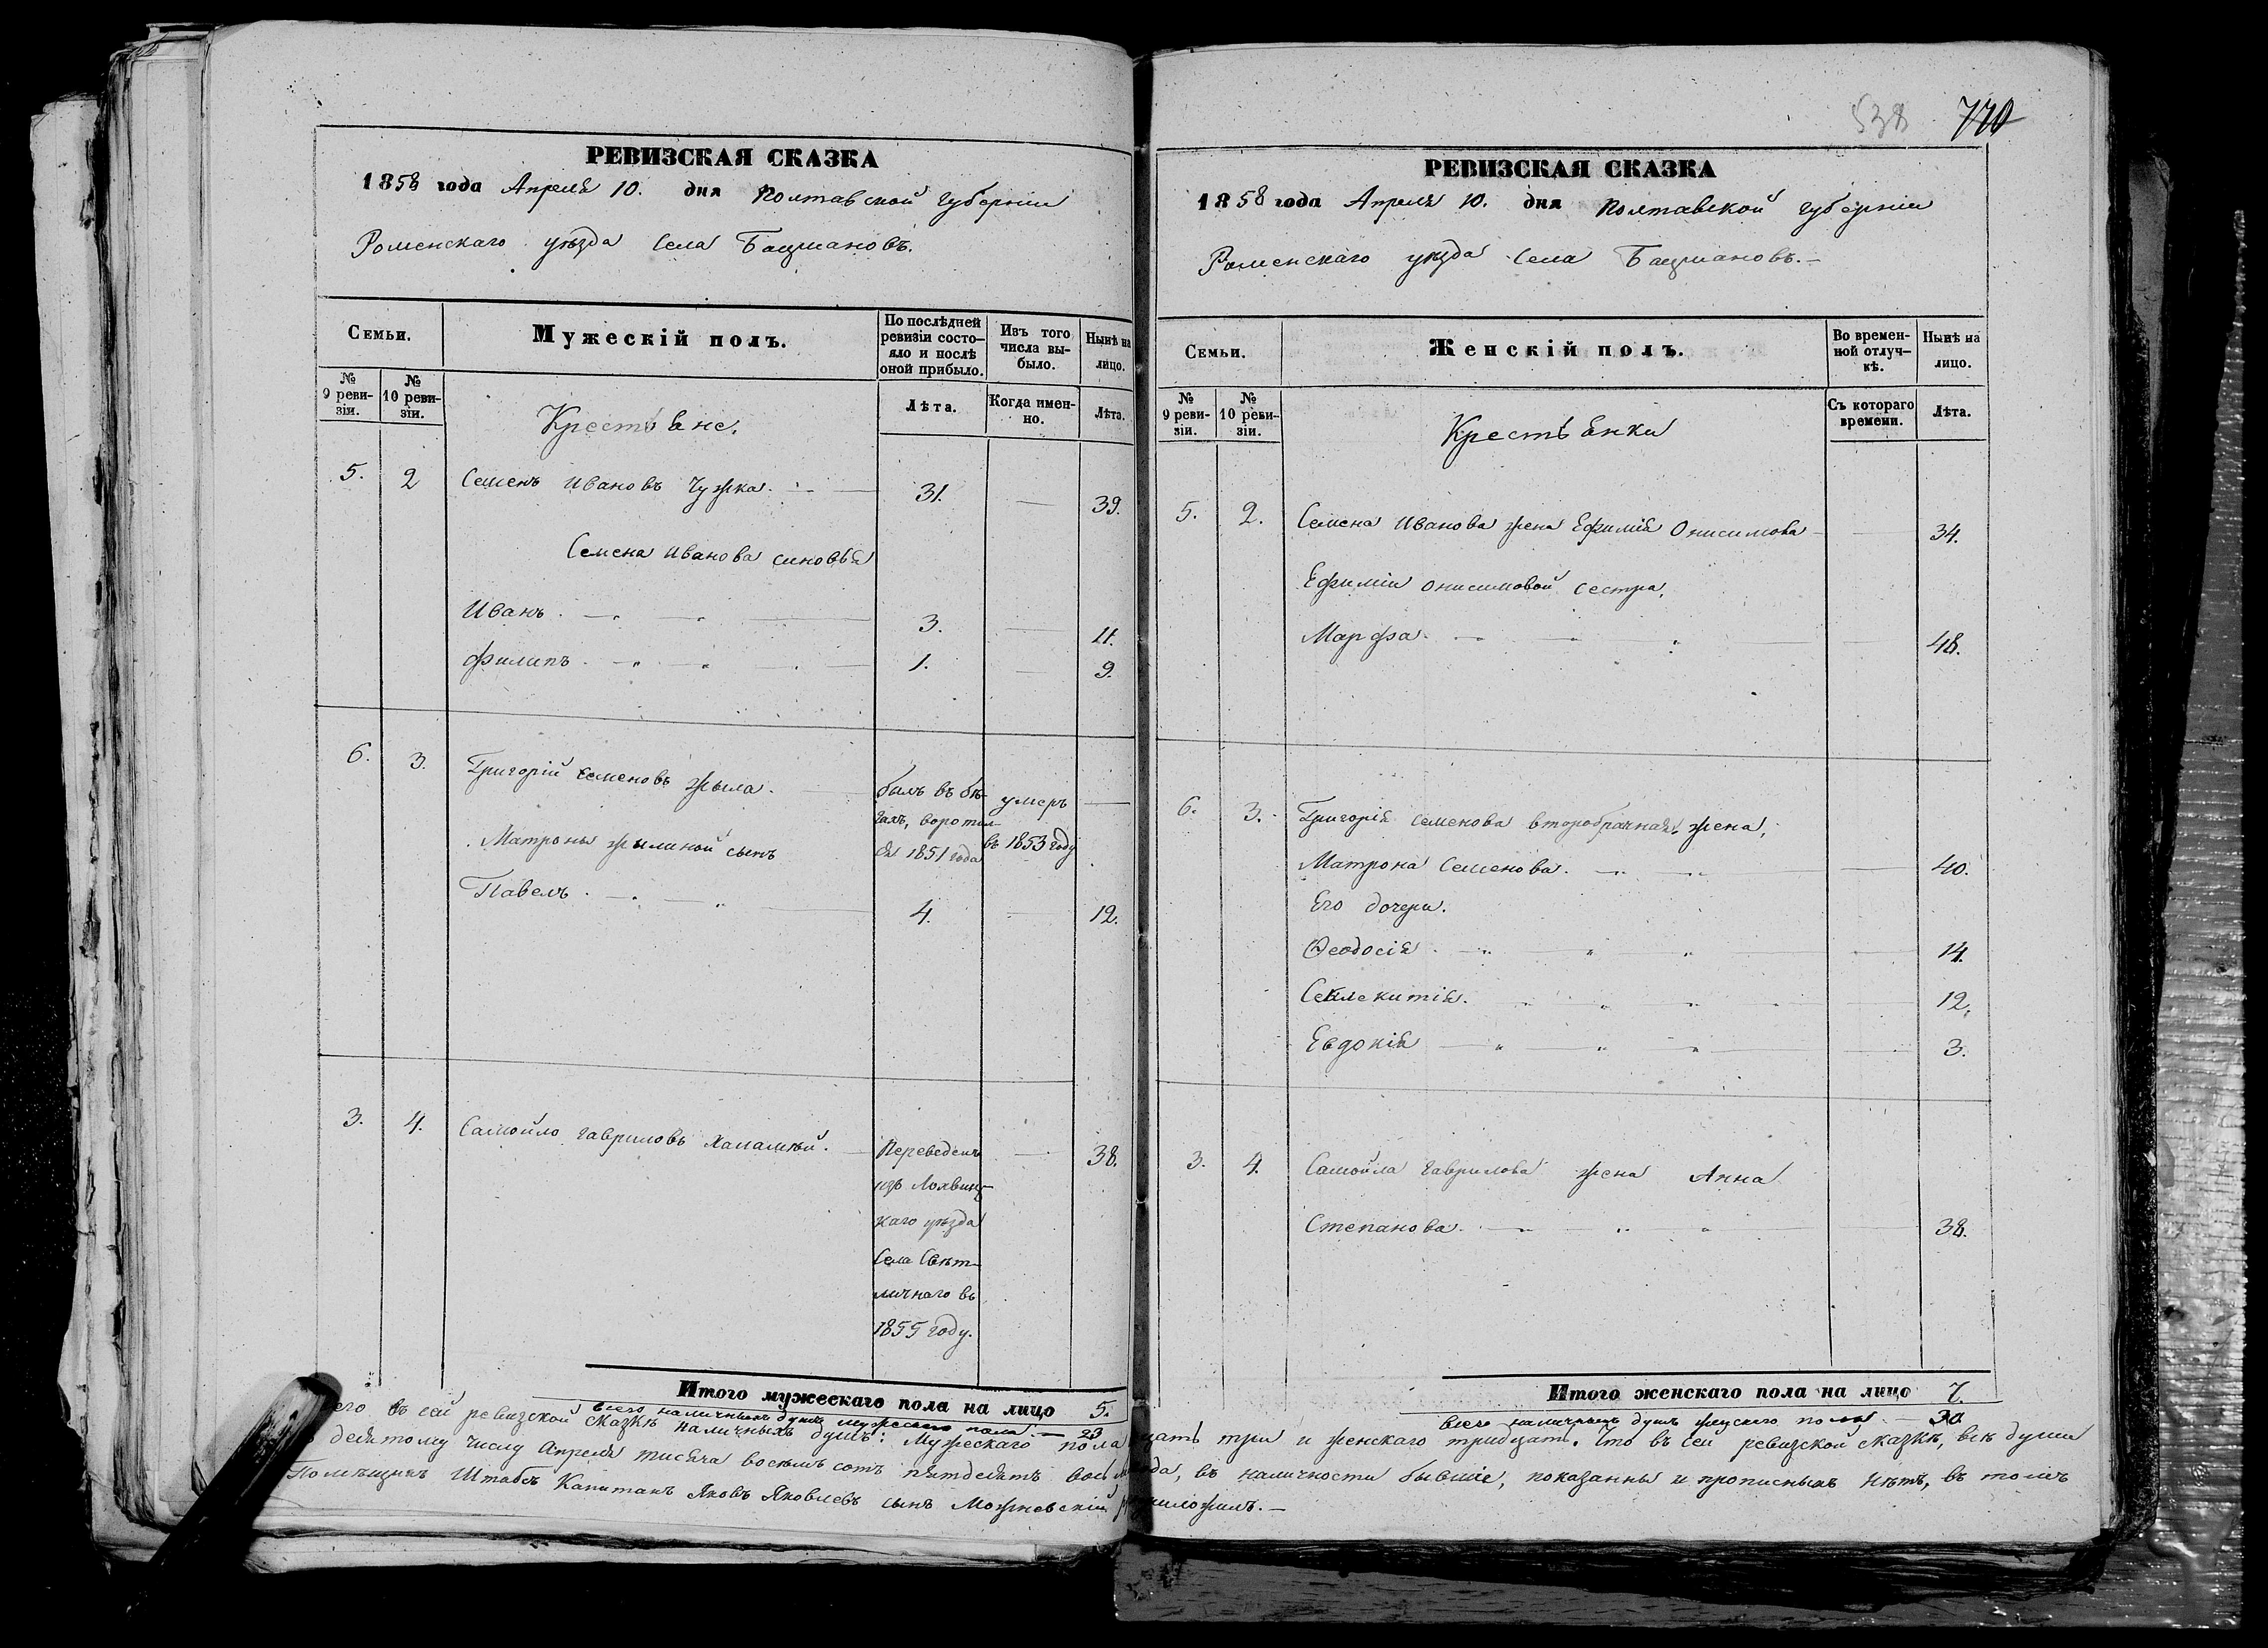 РЕВИЗСКАЯ СКАЗКА
1858 года Апреля 10. дня Полтавской губерніи
Роменскаго уѣзда Села Бацмановъ.
Семьи.
Мужескій полъ.
По послѣдней ревизіи состояло и послѣ оной прибыло.
Изъ того числа выбыло.
Нынѣ на лицо.
№ 9 ревизіи.
№ 10 ревизіи.
Крестьяне.
Лѣта.
Когда именно.
Лѣта.
5. 2 Семенъ Ивановъ Чужка. 31. — 39.
Семена Иванова синовья
Иванъ. 3. — 11.
Филипъ. 1. — 9.
6. 3. Григорій Семеновъ Жыла. былъ въ бѣгахъ, воротился 1851 года умеръ въ 1853 году —
Матроны Жылиной сынъ
Павелъ. 4. — 12.
3. 4. Самойло Гавриловъ. — 38.
Переведенъ
изъ Лохвиц-
каго уѣзда
Села Свѣт-
личнаго въ
1855 году.
Итого мужескаго пола на лицо 5.
всего наличныхъ душъ мужескаго пола. — 23
538 770
РЕВИЗСКАЯ СКАЗКА
1858 года Апреля 10. дня Полтавской губерніи
Роменскаго уѣзда Села Бацмановъ. —
Семьи.
Женскій полъ.
Во временной отлучкѣ.
Нынѣ на лицо.
№ 9 ревизіи.
№ 10 ревизіи.
Крестьянки
Съ котораго времени.
Лѣта.
5. 2. Семена Иванова жена Ефимія Онисимова — 34.
Ефиміи Онисимовой сестра,
Марфа. — 48.
6. 3. Григорія Семенова второбрачная жена,
Матрона Семенова. — 40.
Его дочери.
Ѳеодосія. — 14.
Секлекитія. 12.
Евдокія — 3.
3. 4. Самойла Гаврилова жена Анна
Степанова. — 38.
Итого женскаго пола на лицо 7.
всего наличныхъ душъ женскаго пола — 30.
его въ сей ревизской сказкѣ наличныхъ душъ: Мужескаго пола цать три и женскаго тридцать. Что въ сей ревизской сказкѣ, всѣ души
десятому числу Апреля тисяча восемь сотъ пятдесятъ восьм да, въ наличности бывшіе, показанны и прописныхъ нѣтъ, въ томъ
Помѣщикъ Штабсъ Капитанъ Яковъ Яковлевъ сынъ Можневскій риложилъ. —